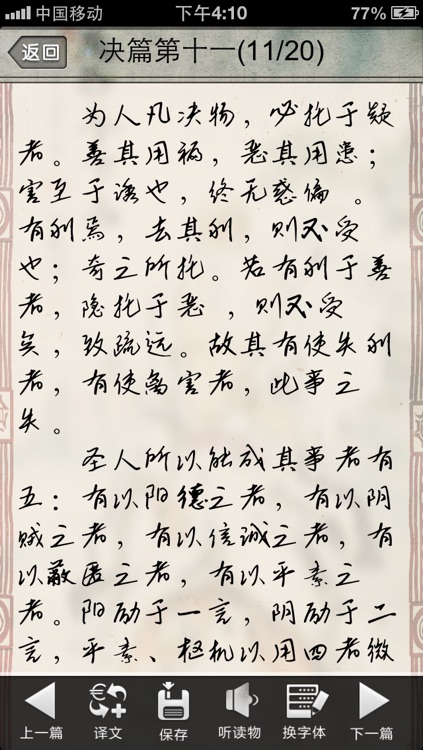 中国移动 下午4:10 77%
返回 决篇第十一(11/20)
为人凡决物，必托于疑
者。善其用福，恶其用患；
害至于诱也，终无惑偏 。
有利焉，去其利，则不受
也；奇之所托。若有利于善
者，隐托于恶 ，则不受
矣，致疏远。故其有使失利
者，有使离害者，此事之
失。
圣人所以能成其事者有
五：有以阳德之者，有以阴
贼之者，有以信诚之者，有
以蔽匿之者，有以平素之
者。阳励于一言，阴励于二
言，平素、枢机以用四者微
上一篇 译文 保存 听读物 换字体 下一篇